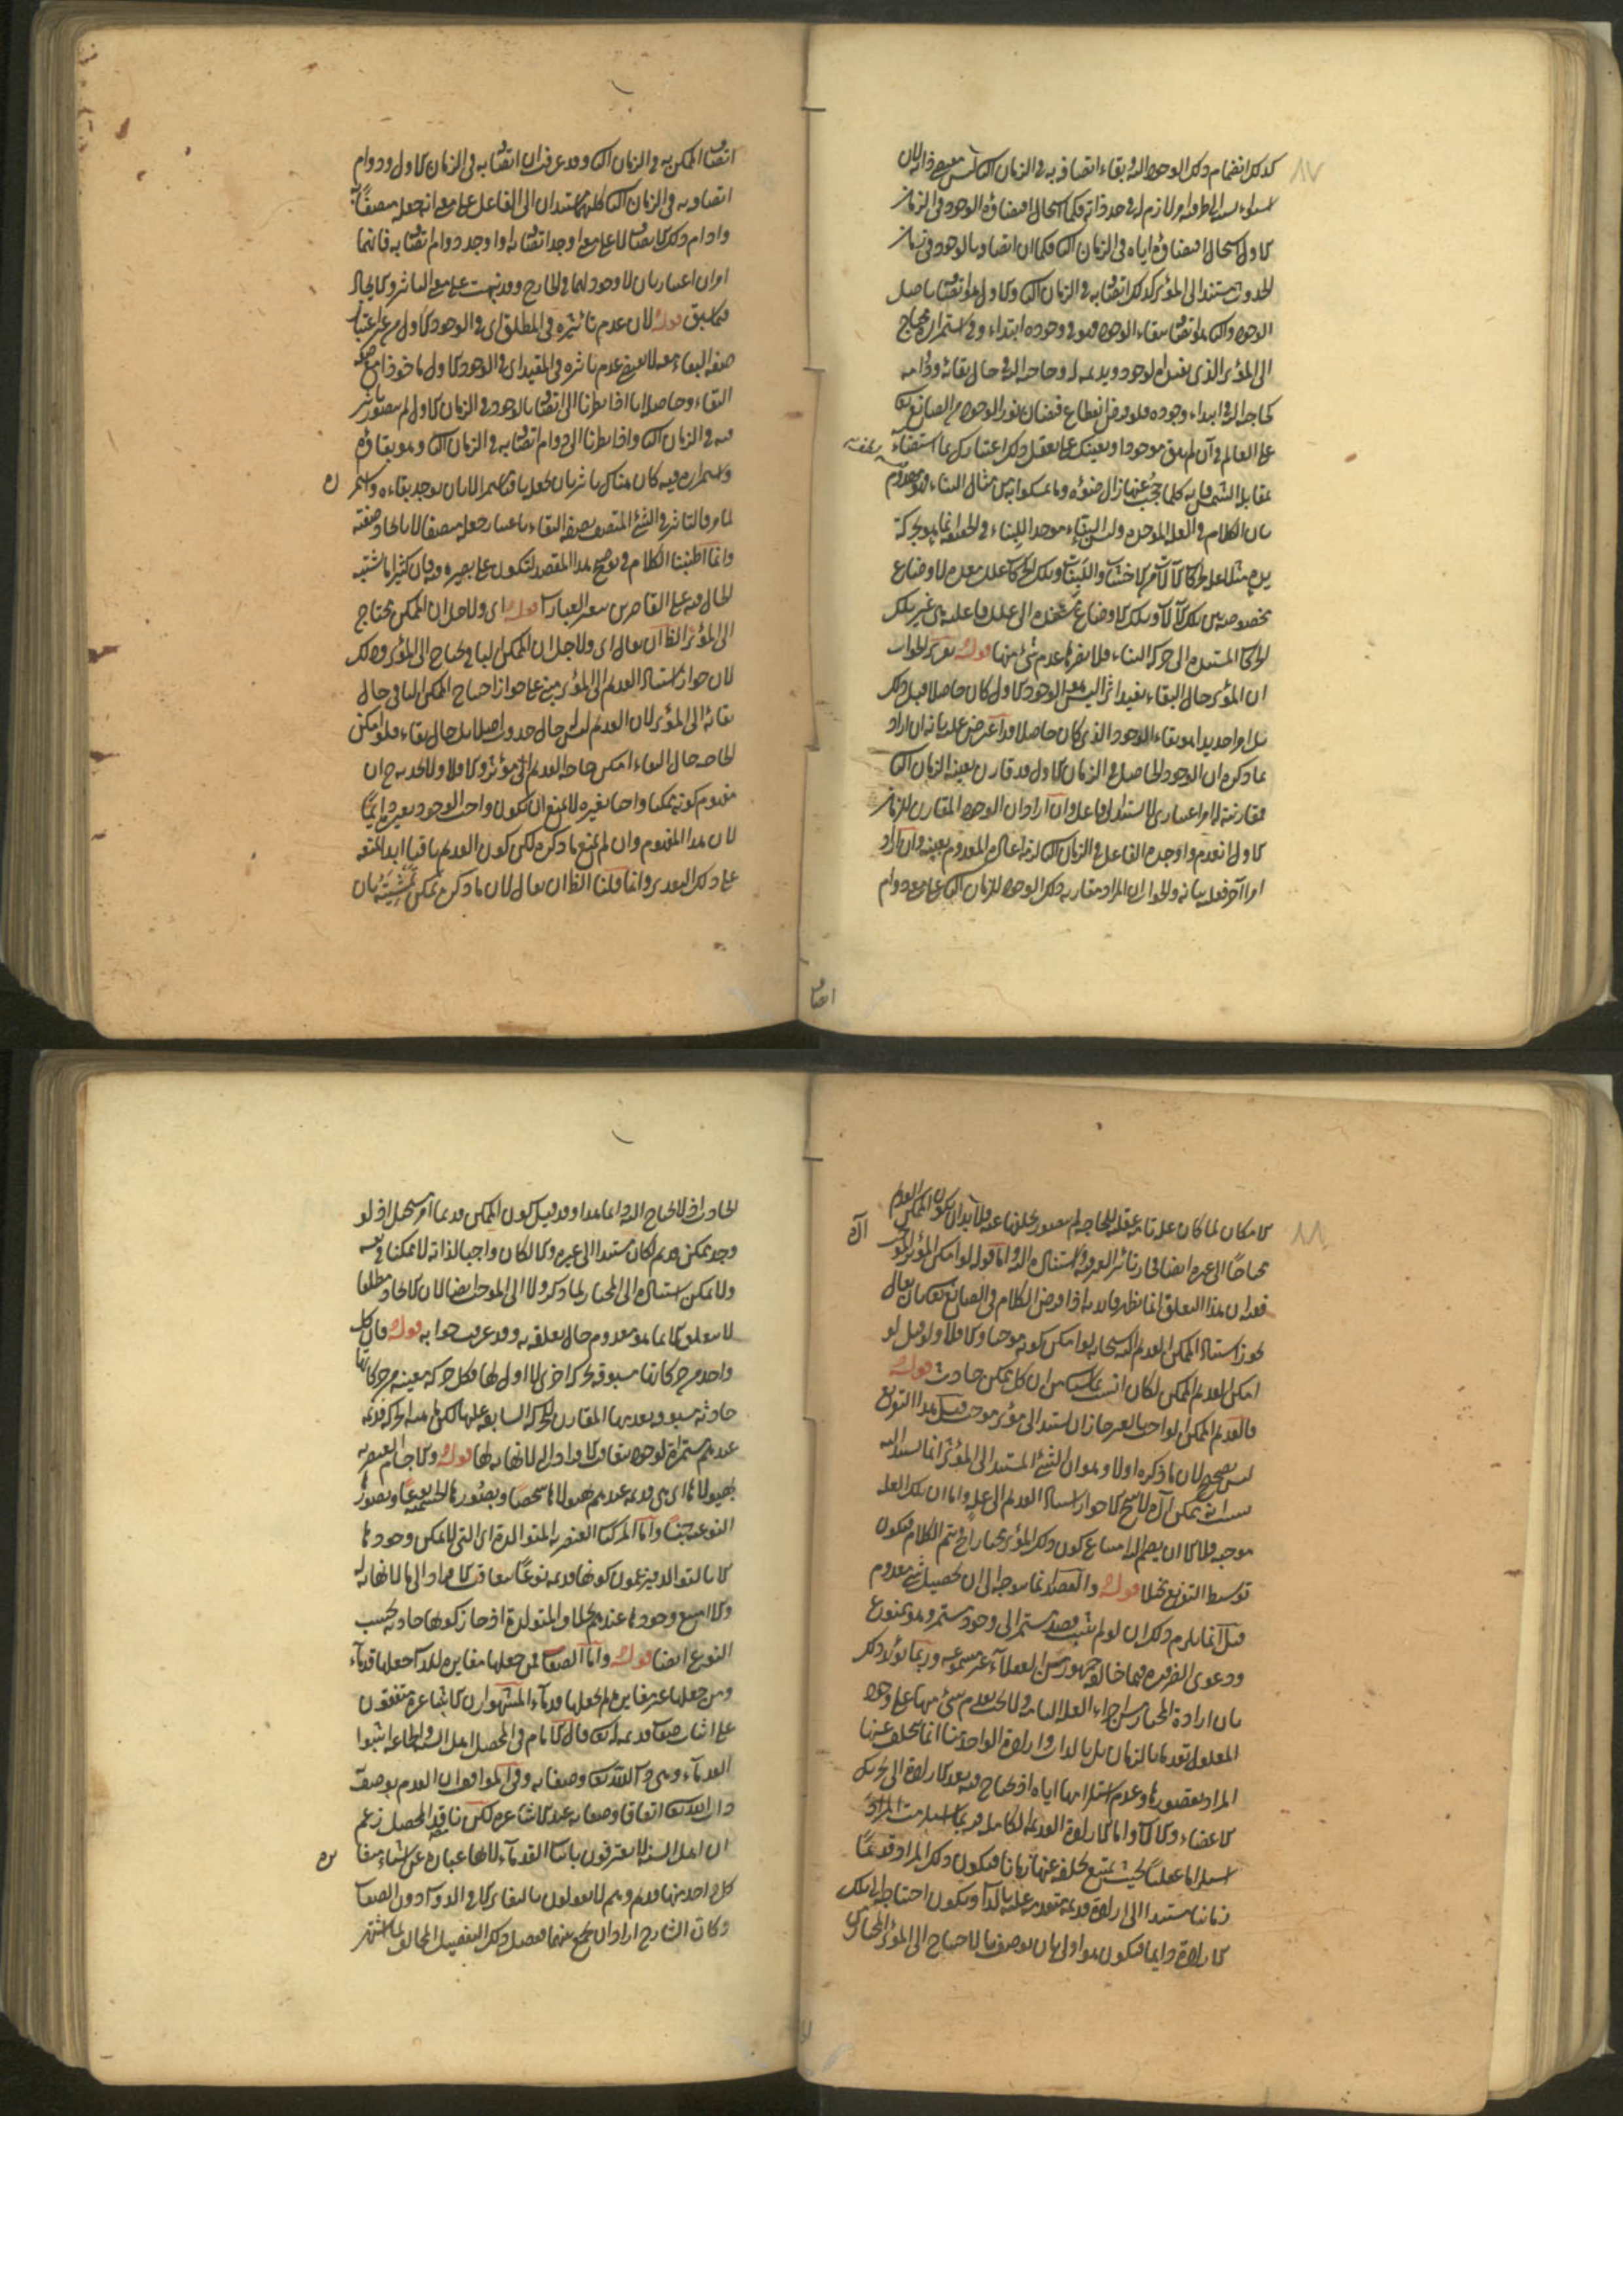 ٨٧
كذلك انضمام ذلك الوجود اليه بقاء اتصافه به في الزمان الثاني ليس مقتضى ذاته لان
استواء نسبة الطرفين امر لازم له في حد ذاته فكما استحال اقتضاؤه الوجود في الزمان
الاول استحال اقتضاؤه اياه في الزمان الثاني فكما ان اتصافه بالوجود في زمان
الحدوث مستند الى المؤثر كذلك اتصافه به في الزمان الثاني والاول هو اتصافه باصل
الوجود والثاني هو اتصافه ببقاء الوجود فهو في وجوده ابتداء وفي استمراره محتاج
الى المؤثر الذي يفيده الوجود ويديمه له وحاجته اليه في حال بقائه ودوامه
كحاجته اليه في ابتداء وجوده فلو فرض انقطاع فيضان نور الوجود من الصانع تعالى
على العالم في آن لم يبق موجودا ويعينك على تعقل ذلك اعتبارك بما استضاء
بمقابلة الشمس فانه كلما حجب عنها زال ضوؤه وما تمسكوا به من مثال البناء فهو مدفوع
بان الكلام في العلة الموجدة وليس البناء موجدا للبناء في الحقيقة انما هو بحركة
يده مثلا علة لحركات الآلات من الاخشاب واللبنات وتلك الحركات علل معدة لاوضاع
مخصوصة بين تلك الآلات وتلك الاوضاع مستندة الى علل فاعلية هي غير تلك
الحركات المستندة الى حركة البناء فلا يضرها عدم شيء منها قوله تقرير الجواب
ان المؤثر حال البقاء يفيد اثرا ليس هو الوجود الاول كان حاصلا قبل ذلك
بل امرا جديدا هو بقاء الوجود الذي كان حاصلا وقد اعترض عليه بانه ان اراد
بما ذكره ان الوجود الحاصل في الزمان الاول قد قارن بعينه الزمان الثاني
فمقارنته له امر اعتباري لا يستند الى فاعل وان اراد ان الوجود المقارن للزمان
الاول انعدم واوجده الفاعل في الزمان الثاني لزم اعادة المعدوم بعينه وان اراد
امرا آخر فعليه بيانه والجواب ان المراد مقارنة ذلك الوجود للزمان الثاني على معنى دوام
اتصاف
اتصاف الممكن به في الزمان الثاني وقد عرفت ان اتصافه به في الزمان الاول ودوام
اتصافه به في الزمان الثاني كلاهما مستندان الى الفاعل على معنى انه جعله متصفا به
وادام ذلك الاتصاف لا على معنى اوجد اتصافه او اوجد دوام اتصافه به فانهما
امران اعتباريان لا وجود لهما في الخارج وقد نبهت على معنى التأثير والايجاد
فيما سبق قوله لان عدم تأثيره في المطلق اي في الوجود الاول من غير اعتبار
صفة البقاء معه لا يقتضي عدم تأثيره في المقيد اي في الوجود الاول مأخوذا مع صفة
البقاء وحاصله انا اذا نظرنا الى اتصافه بالوجود في الزمان الاول لم يتصور تأثير
فيه في الزمان الثاني واذا نظرنا الى دوام اتصافه به في الزمان الثاني وهو بقاؤه
واستمراره فيه كان هناك تأثير بان يجعل باقيا مستمرا لا بان يوجد بقاءه واستمراره
لما مر فالتأثير في الشيء المتصف بصفة البقاء باعتبار جعله متصفا لا بايجاد صفته
وانما اطنبنا الكلام في توضيح هذا المقصد لتكون على بصيرة فيه فان كثيرا ما يشتبه
الحال فيه على القاصرين بتغيير العبارات قوله اي ولاجل ان الممكن يحتاج
الى المؤثر الظ ان يقال اي ولاجل ان الممكن الباقي يحتاج الى المؤثر وذلك
لان جواز استناد القديم الى المؤثر مبني على جواز احتياج الممكن الباقي حال
بقائه الى المؤثر لان القديم ليس له حال حدوث اصلا بل حال بقاء فلو امكن
الحاجة حال البقاء امكن حاجة القديم الى مؤثر والا فلا ولا يجديه ح ان
مفهوم كونه ممكنا واجبا بغيره لا يمنع ان يكون واجب الوجود بغيره دائما
لان هذا المفهوم وان لم يمنع ما ذكره لكن كون القديم باقيا ابدا يمنعه
على ذلك التقدير وانما قلنا الظ ان يقال لان ما ذكره يمكن تمشيته بان
٨٨
الامكان لما كان علة تامة عقلية للحاجة لم يتصور تخلفها عنه فلا بد ان يكون الممكن القديم
محتاجا الى غيره ايضا في ترتب التأثير المعروف استناده اليه واما قوله لو امكن المؤثر الموجب
فقد ان هذا التعلق انما يظهر فائدته اذا فرض الكلام في الصانع تعالى بان يقال
يجوز استناد الممكن القديم اليه سبحانه لو امكن كونه موجبا والا فلا ولو قيل لو
امكن القديم الممكن لكان انسب بما سيأتي من ان كل ممكن حادث قوله
فالقديم الممكن الواجب بالغير جاز ان يستند الى مؤثر موجب قيل هذا التفريع
ليس بصحيح لان ما ذكره اولا وهو ان الشيء المستند الى المؤثر انما يستند اليه
بسبب انه ممكن آه لا ينتج الا جواز استناد القديم الى علة واما ان تلك العلة
موجبة فلا الا ان يضم اليه امتناع كون ذلك المؤثر مختارا حتى يتم الكلام فيكون
توسيط التفريع مخلا قوله والقصد انما يتوجه الى تحصيل شيء معدوم
قيل انما يلزم ذلك ان لو لم يثبت قصد مستمر الى وجود مستمر وهو ممنوع
ودعوى الضرورة فيما خالفه جمهور من العقلاء غير مسموعة وربما يؤيد ذلك
بان ارادة المختار من اجزاء العلة التامة ولا يجب تقدم شيء منها على وجود
المعلول تقدما بالزمان بل بالذات وارادة الواحد منا انما تخلف عنها
المراد لقصورها وعدم استلزامها اياه اذ يحتاج فيه بعد الارادة الى تحريك
الاعضاء والآلات واما الارادة القديمة الكاملة فربما استلزمت المراد
استلزاما عقليا بحيث يمتنع تخلفه عنها زمانا فيكون ذلك المراد قديما
زمانيا مستندا الى ارادة قديمة متقدمة عليه بالذات ويكون احتياجه الى تلك
الارادة دائما فيكون هو اولى بان يوصف بالاحتياج الى المؤثر المختار من
الحادث اذ لا يحتاج اليه دائما هذا وقد قيل كون الممكن قديما امر مستحيل اذ لو
وجد ممكن قديم لكان مستندا الى غيره والا لكان واجبا لذاته لا ممكنا في نفسه
ولا يمكن استناده الى المختار لما ذكر ولا الى الموجب ايضا لان الايجاد مطلقا
لا يتعلق الا بما هو معدوم حال تعلقه به وقد عرفت جوابه قوله فان كل
واحد من حركاتها مسبوقة بحركة اخرى لا الى اول لها فكل حركة معينة من حركاتها
حادثة مسبوقة بعدمها المقارن للحركة السابقة عليها لكن ماهية الحركة قديمة
عندهم مستمرة الوجود بتعاقب افراد لا نهاية لها قوله والاجسام العنصرية
بهيولاها اي هي قديمة عندهم بهيولاها شخصا وبصورها الجسمية نوعا وبصورها
النوعية جنسا واما المركبات العنصرية المتوالدة اي التي لا يمكن وجودها
الا بالتوالد فيزعمون كونها قديمة نوعا بتعاقب الافراد الى ما لا نهاية له
والا امتنع وجودها عندهم بخلاف المتولدة اذ جاز كونها حادثة بحسب
النوع ايضا قوله واما الصفات فمن جعلها مغايرة للذات جعلها قدماء
ومن جعلها غير مغايرة لم يجعلها قدماء المشهور ان الاشاعرة متفقون
على اثبات صفات قديمة له تعالى قال الامام في المحصل اهل السنة والجماعة اثبتوا
القدماء وهي ذات الله تعالى وصفاته وفي المواقف ان القدم يوصف به
ذات الله تعالى اتفاقا وصفاته عند الاشاعرة لكن ناقد المحصل زعم
ان اهل السنة لا يعترفون باثبات القدماء لانها عبارة عن اشياء متغايرة
كل واحد منها قديم وهم لا يقولون بالتغاير الا في الذوات دون الصفات
وكان الشارح اراد ان يجمع بينهما ففصل ذلك التفصيل المخالف لما اشتهر